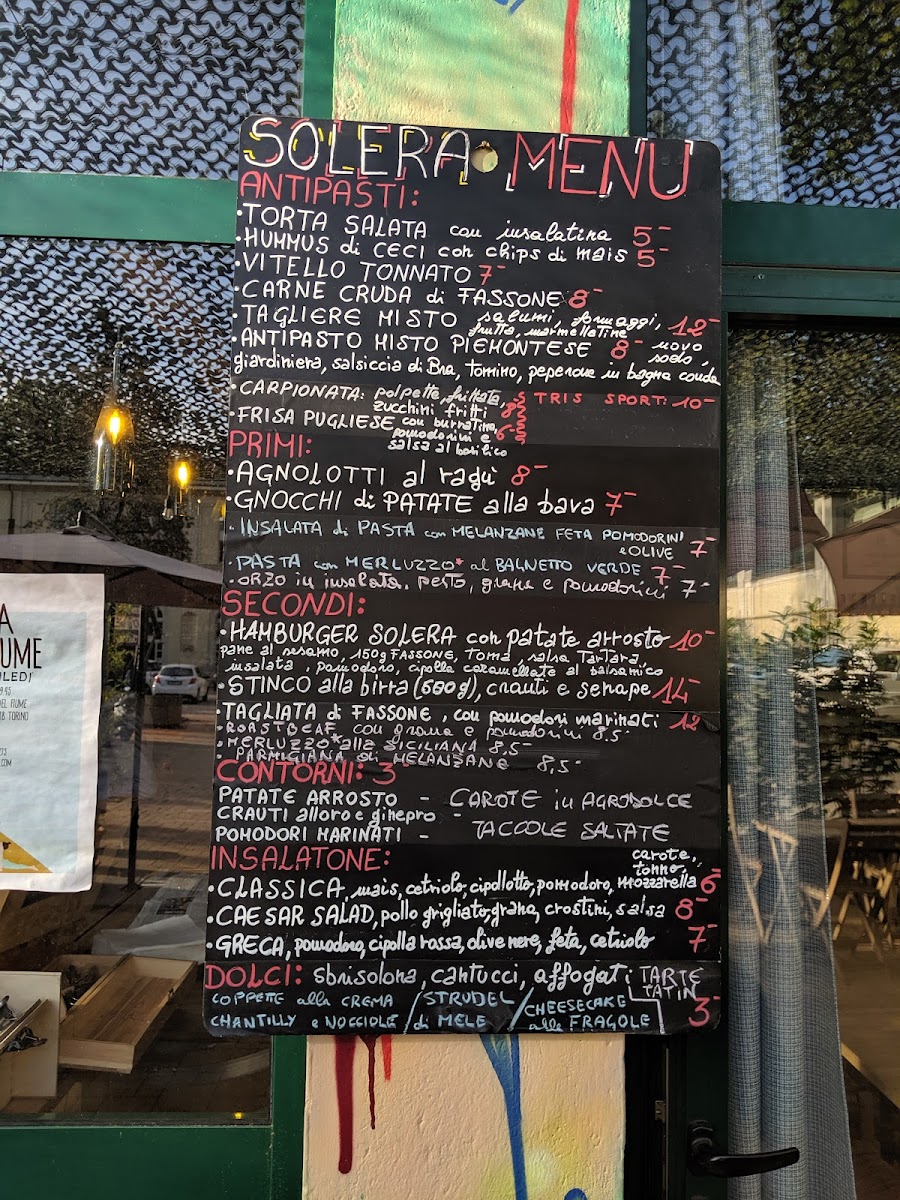 SOLERA MENU
ANTIPASTI:
•TORTA SALATA con insalatina 5-
•HUMMUS di CECI con chips di mais 5-
•VITELLO TONNATO 7-
•CARNE CRUDA di FASSONE 8-
•TAGLIERE MISTO salumi, formaggi, 12-
frutta, marmellatine
•ANTIPASTO MISTO PIEMONTESE 8- uovo
sodo,
giardiniera, salsiccia di Bra, tomino, peperone in bagna cauda
•CARPIONATA: polpette, frittata,
zucchini fritti 8-
TRIS SPORT: 10-
•FRISA PUGLIESE con burratina,
pomodorini e 6-
salsa al basilico
PRIMI:
•AGNOLOTTI al ragù 8-
•GNOCCHI di PATATE alla bava 7-
•INSALATA di PASTA con MELANZANE FETA POMODORINI
e OLIVE 7-
•PASTA con MERLUZZO* al BAGNETTO VERDE 7-
•ORZO in insalata, pesto, grana e pomodorini 7-
SECONDI:
•HAMBURGER SOLERA con patate arrosto 10-
pane al sesamo, 150g FASSONE, Toma, salsa TarTara,
insalata, pomodoro, cipolla caramellata al balsamico
•STINCO alla birra (600g), crauti e senape 14-
•TAGLIATA di FASSONE, con pomodori marinati 12
•ROASTBEAF con grana e pomodorini 8,5-
•MERLUZZO* alla SICILIANA 8,5-
•PARMIGIANA di MELANZANE 8,5-
CONTORNI: 3-
PATATE ARROSTO - CAROTE in AGRODOLCE
CRAUTI alloro e ginepro -
POMODORI MARINATI - TACCOLE SALTATE
INSALATONE:
carote,
tonno,
•CLASSICA, mais, cetriolo, cipollotto, pomodoro, mozzarella 6-
•CAESAR SALAD, pollo grigliato, grana, crostini, salsa 8-
•GRECA, pomodoro, cipolla rossa, olive nere, feta, cetriolo 7-
DOLCI: sbrisolona, cantucci, affogati TARTE
TATIN
COPPETE alla CREMA / STRUDEL / CHEESECAKE
CHANTILLY e NOCCIOLE / di MELE / alle FRAGOLE 3-
A
UME
ILEDI
DEL FIUME
TORINO
.COM